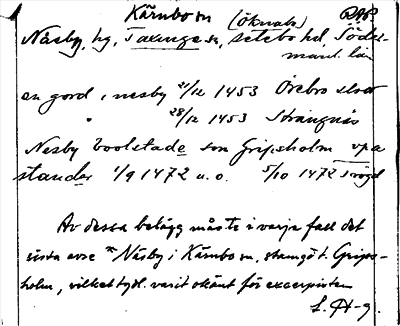 Kärnbo sn (Öknabo)
Näsby, hg, Taxinge sn, Selebo hd, Söder-
manl. län
en gord i nesby 21/12 1453 Örebro slott
" 28/12 1453 Strängnäs
Nesby boolstade son Gripsholm vpa
stander 1/9 1472 u.o. 5/10 1472
Av dessa belägg måste i varje fall det
sista avse * Näsby i Kärnbo sn, stamgd t. Grips-
holm, vilket tydl. varit okänt för excerpisten